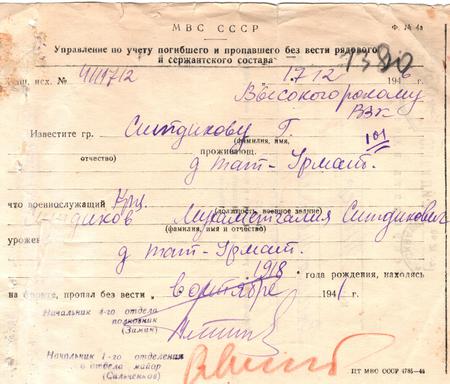 МВС СССР
Ф. № 4а
Управление по учету погибшего и пропавшего без вести рядового
и сержантского состава
исх. № 17 12 194 г. 1380
Высокогорскому
РВК
Известите гр. Ситдикову Г. 101
(фамилия, имя,
отчество) проживающ.
д Тат-Урмат.
что военнослужащий Кр-ц
(должность, военное звание)
Ситдиков Ситдикович
(фамилия, имя и отчество)
урожен
д Тат-Урмат.
1918 года рождения, находясь
на фронте, пропал без вести в октябре 1941 г.
Начальник 4-го отдела
полковник
(Заман)
Начальник 1-го отделения
отдела майор
(Сильченков)
ПТ МВС СССР 4785—46